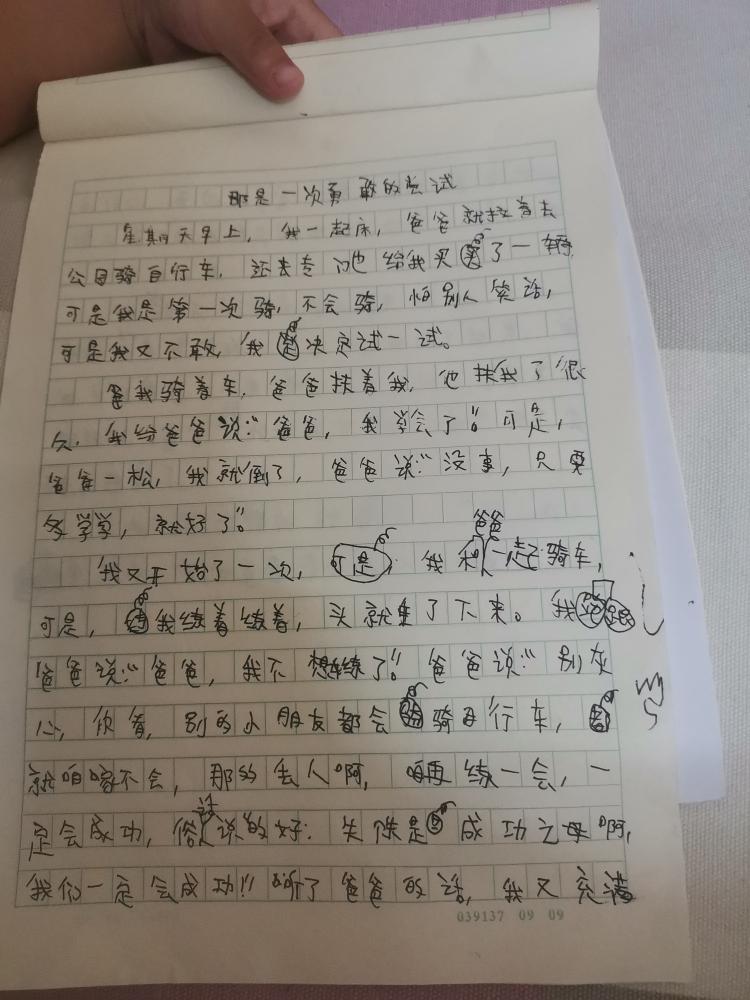 那是一次勇敢的尝试
星期天早上，我一起床，爸爸就拉着去
公园骑自行车，还去专门也给我买了一辆，
可是我是第一次骑，不会骑，怕别人笑话，
可是我又不敢，我决定试一试。
爸我骑着车，爸爸扶着我，他扶我了很
久，我给爸爸说：“爸爸，我学会了”。可是，
爸爸一松，我就倒了，爸爸说：“没事，只要
多学学，就好了”。
爸爸
我又开始了一次，可是，我和一起骑车，
可是，我练着练着，头就垂了下来。我跟
爸爸说：“爸爸，我不想练了”。爸爸说：“别灰
心，你看，别的小朋友都会骑自行车，
就咱家不会，那多丢人啊，咱再练一会，一
话
定会成功，俗说的好：失败是成功之母啊，
我们一定会成功！”听了爸爸的话，我又充满
039137 09 09